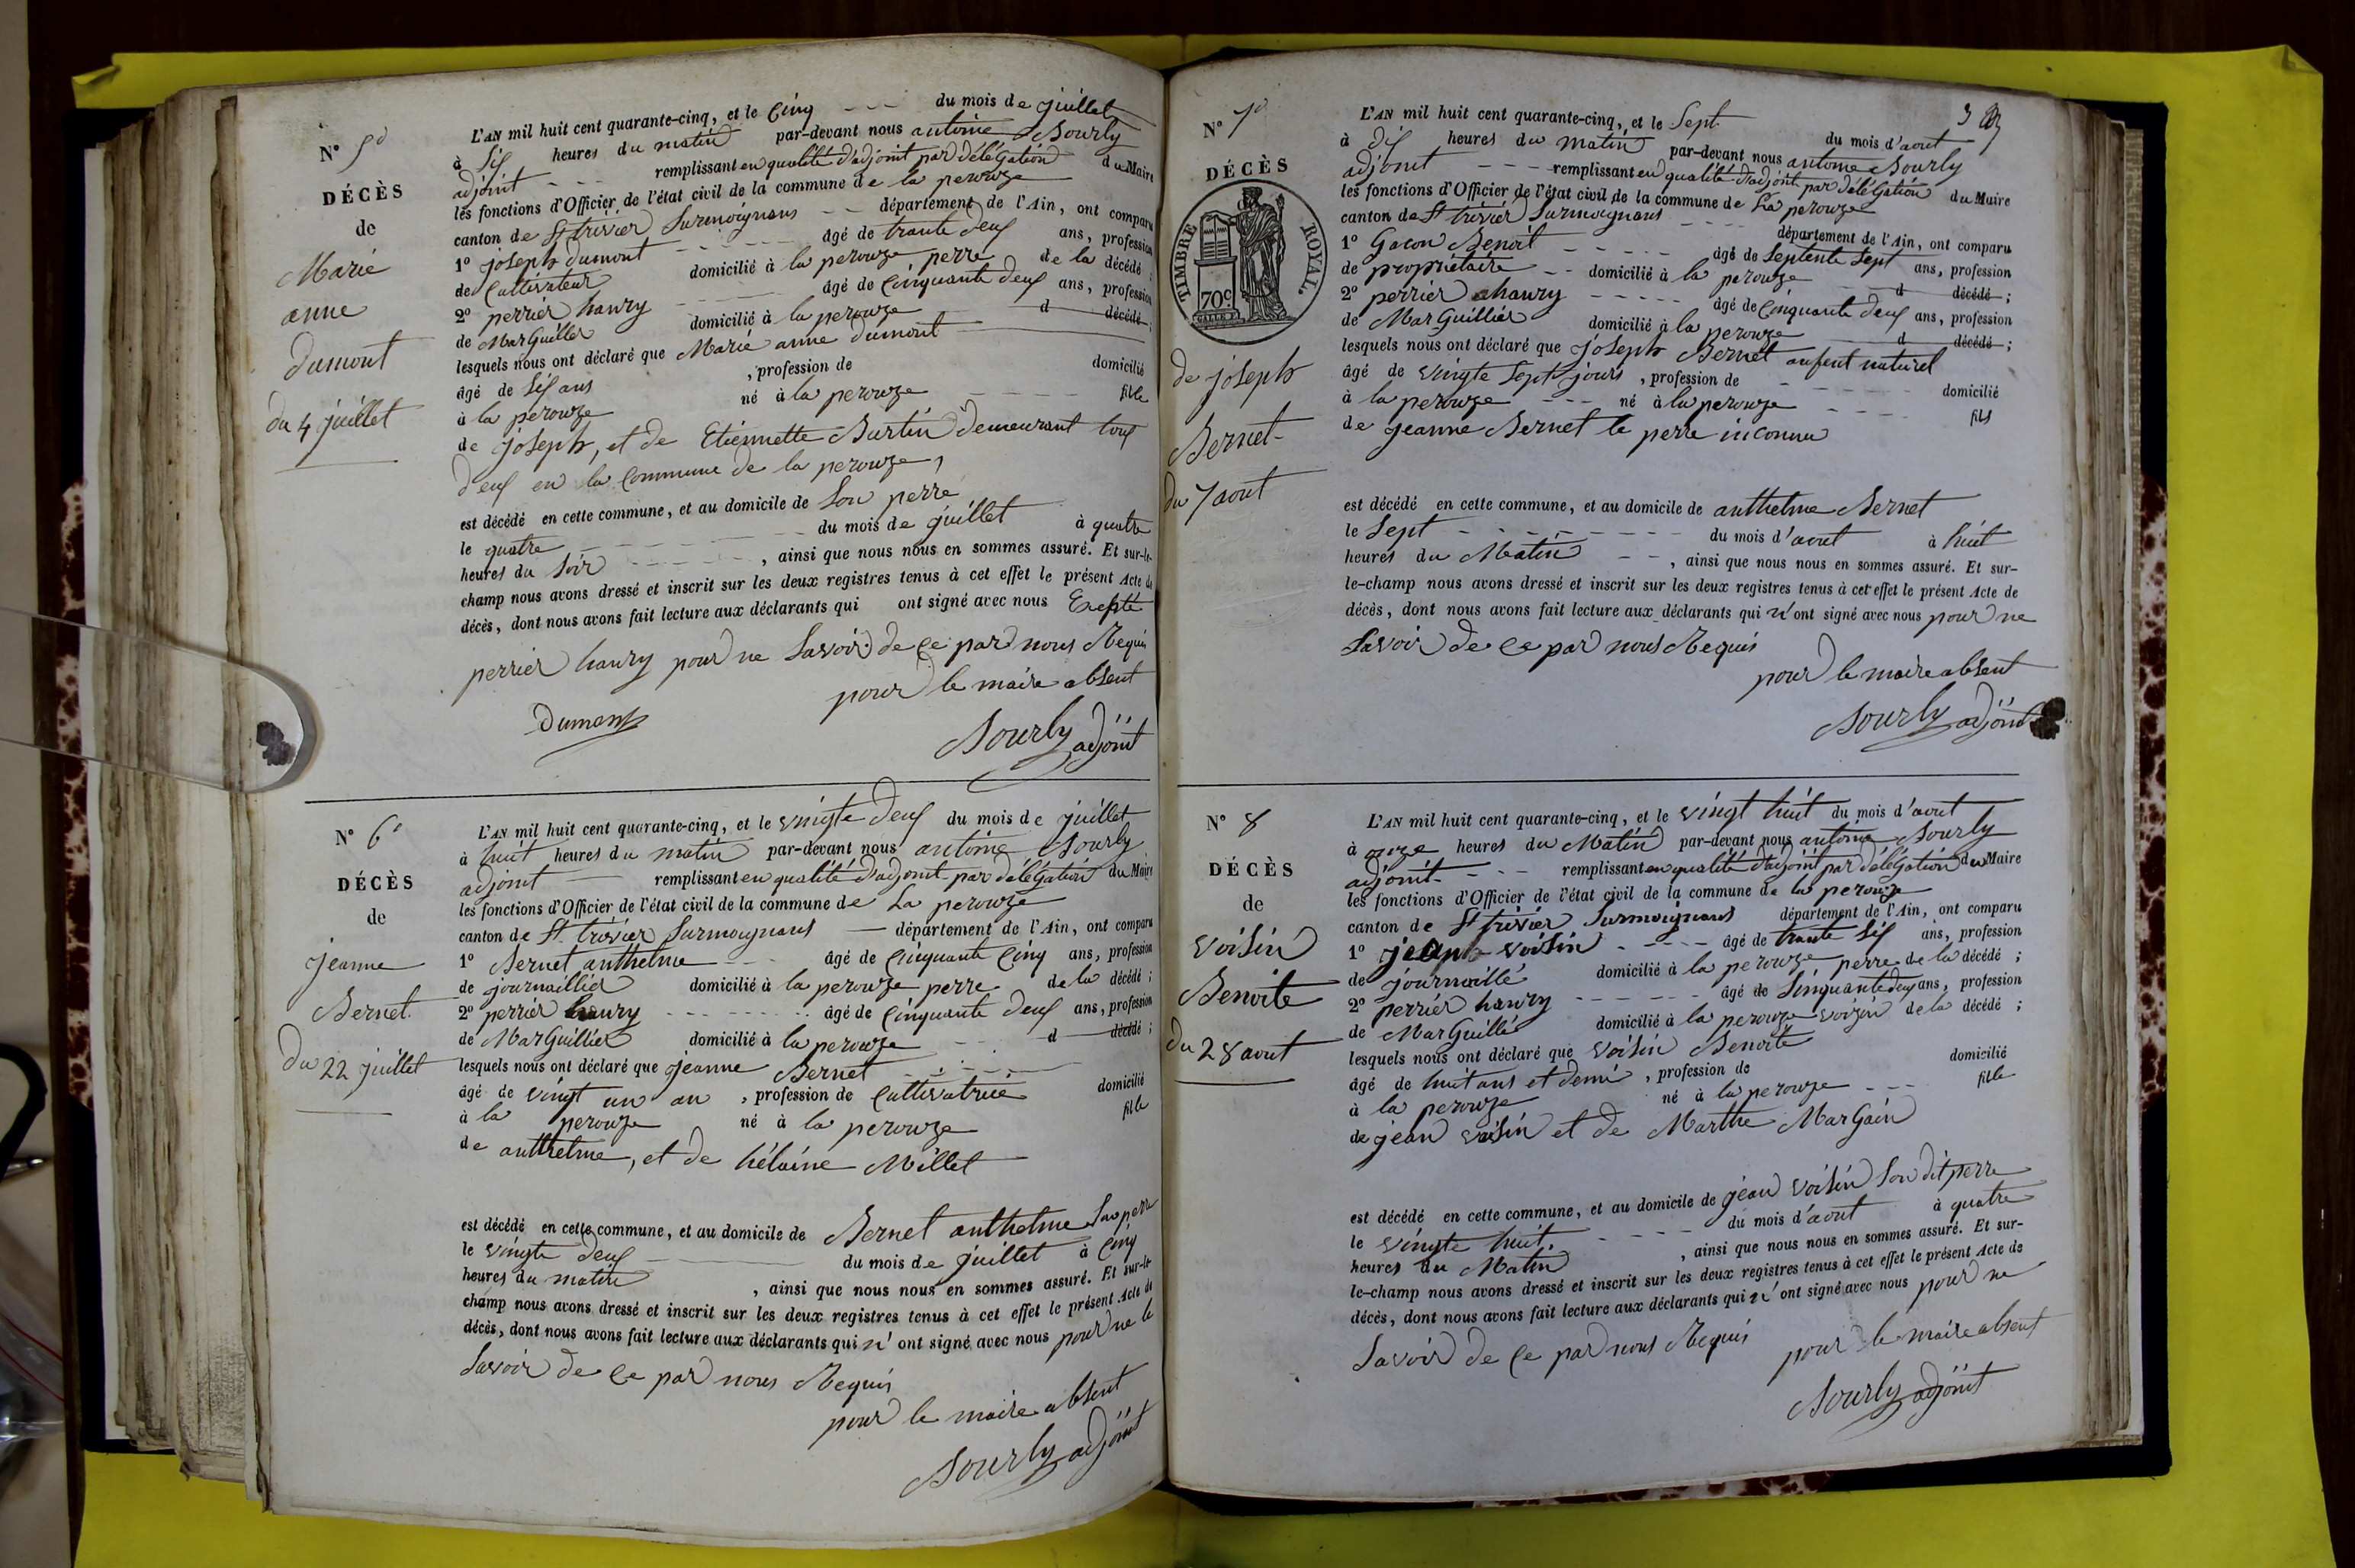 N° 5e
DÉCÈS
de
Marie
anne
dumont
du 4 juillet
L'AN mil huit cent quarante-cinq, et le cinq du mois de juillet
à Six heures du matin par-devant nous antoine Bourly
adjoint remplissant en qualité d'adjoint par délégation du Maire
les fonctions d'Officier de l'état civil de la commune de la perouze
canton de St trivier Surmoignans département de l'Ain, ont comparu
1° joseph dumont âgé de trante deux ans, profession
de Cultivateur domicilié à la perouze perre de la décédé ;
2° perrier hanry âgé de Cinquante deux ans, profession
de MarGuillier domicilié à la perouze d décédé ;
lesquels nous ont déclaré que Marie anne dumont
âgé de Six ans , profession de domicilié
à la perouze né à la perouze fille
de joseph, et de Etiennette Burtin demeurant tous
deux en la Commune de la perouze,
est décédé en cette commune, et au domicile de Son perre
le quatre du mois de juillet à quatre
heures du Soir , ainsi que nous nous en sommes assuré. Et sur-le-
champ nous avons dressé et inscrit sur les deux registres tenus à cet effet le présent Acte de
décès, dont nous avons fait lecture aux déclarants qui ont signé avec nous Excepté
perrier hanry pour ne Savoir de Ce par nous Requis
pour le maire absent
Dumont
Bourly adjoint
N° 6e
DÉCÈS
de
jeanne
Bernet
Du 22 juillet
L'AN mil huit cent quarante-cinq, et le vingte deux du mois de juillet
à huit heures du matin par-devant nous antoine Bourly
adjoint remplissant en qualité d'adjoint par délégation du Maire
les fonctions d'Officier de l'état civil de la commune de La perouze
canton de St. trivier Surmoignans département de l'Ain, ont comparu
1° Bernet anthelme âgé de Cinquante Cinq ans, profession
de journaillier domicilié à la perouze perre de la décédé ;
2° perrier hanry âgé de Cinquante deux ans, profession
de MarGuillier domicilié à la perouze d décédé ;
lesquels nous ont déclaré que jeanne Bernet
âgé de vingt un an , profession de Cultivatrice domicilié
à la perouze né à la perouze fille
de anthelme, et de hélaine Millet
est décédé en cette commune, et au domicile de Bernet anthelme Son perre
le vingte deux du mois de juillet à Cinq
heures du matin , ainsi que nous nous en sommes assuré. Et sur-le-
champ nous avons dressé et inscrit sur les deux registres tenus à cet effet le présent Acte de
décès, dont nous avons fait lecture aux déclarants qui n' ont signé avec nous pour ne le
Savoir de Ce par nous Requis
pour le maire absent
Bourly adjoint
N° 7e
DÉCÈS
TIMBRE ROYAL.
70c.
de joseph
Bernet
du 7 aout
L'AN mil huit cent quarante-cinq, et le Sept du mois d'aout
à dix heures du matin par-devant nous antoine Bourly
adjoint remplissant en qualité d'adjoint par délégation du Maire
les fonctions d'Officier de l'état civil de la commune de La perouze
canton de St trivier Surmoignans département de l'Ain, ont comparu
1° Gacon Benoit âgé de Septente Sept ans, profession
de propriétaire domicilié à la perouze d décédé ;
2° perrier hanry âgé de Cinquante deux ans, profession
de MarGuillier domicilié à la perouze d décédé ;
lesquels nous ont déclaré que joseph Bernet anfent naturel
âgé de vingte Sept jours , profession de domicilié
à la perouze né à la perouze fils
de jeanne Bernet le perre inconnu
est décédé en cette commune, et au domicile de anthelme Bernet
le Sept du mois d'aout à huit
heures du Matin , ainsi que nous nous en sommes assuré. Et sur-
le-champ nous avons dressé et inscrit sur les deux registres tenus à cet effet le présent Acte de
décès, dont nous avons fait lecture aux déclarants qui n' ont signé avec nous pour ne
Savoir de Ce par nous Requis
pour le maire absent
Bourly adjoint
N° 8
DÉCÈS
de
voisin
Benoite
Du 28 aout
L'AN mil huit cent quarante-cinq, et le vingt huit du mois d'aout
à onze heures du Matin par-devant nous antoine Bourly
adjoint remplissant en qualité d'adjoint par délégation du Maire
les fonctions d'Officier de l'état civil de la commune de la perouze
canton de St trivier Surmoignans département de l'Ain, ont comparu
1° jean voisin âgé de trante Six ans, profession
de journaillé domicilié à la perouze perre de la décédé ;
2° perrier hanry âgé de Sinquante deux ans, profession
de MarGuillié domicilié à la perouze voizin de la décédé ;
lesquels nous ont déclaré que voisin Benoite
âgé de huit ans et demi , profession de domicilié
à la perouze né à la perouze fille
de jean voisin et de Marthe MarGain
est décédé en cette commune, et au domicile de jean voisin Son dit perre
le vingte huit du mois d'aout à quatre
heures du Matin , ainsi que nous nous en sommes assuré. Et sur-
le-champ nous avons dressé et inscrit sur les deux registres tenus à cet effet le présent Acte de
décès, dont nous avons fait lecture aux déclarants qui n' ont signé avec nous pour ne
Savoir de Ce par nous Requis
pour le maire absent
Bourly adjoint